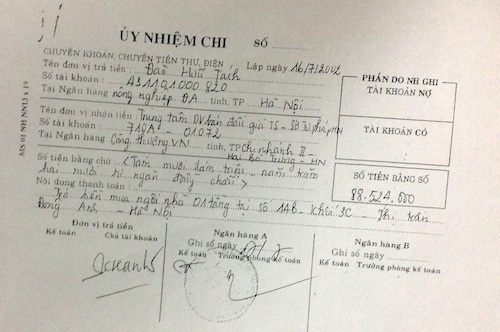 ỦY NHIỆM CHI SỐ
CHUYỂN KHOẢN, CHUYỂN TIỀN THƯ, ĐIỆN Lập ngày 16/7/2002
Tên đơn vị trả tiền: Đào Hữu Tách
Số tài khoản: 431101.000820
Tại Ngân hàng nông nghiệp ĐA tỉnh, TP Hà Nội
Tên đơn vị nhận tiền: Trung tâm DV bán đấu giá TS - Sở Tư pháp HN
Số tài khoản: 710A - 01072
Tại Ngân hàng Công thương VN tỉnh, TP Chi nhánh II -
Hai Bà Trưng - HN
Số tiền bằng chữ (Tám mươi tám triệu - năm trăm
hai mươi tư ngàn đồng chẵn)
Nội dung thanh toán:
Trả tiền mua ngôi nhà 01 tầng tại số 14B - khối 3C - Thị trấn
Đông Anh - Hà Nội
PHẦN DO NH GHI
TÀI KHOẢN NỢ
TÀI KHOẢN CÓ
SỐ TIỀN BẰNG SỐ
88.524.000
Đơn vị trả tiền
Kế toán Chủ tài khoản
Ngân hàng A
Ghi sổ ngày
Kế toán Trưởng phòng kế toán
Ngân hàng B
Ghi sổ ngày
Kế toán Trưởng phòng kế toán
MS 01 NH NN13 x 19